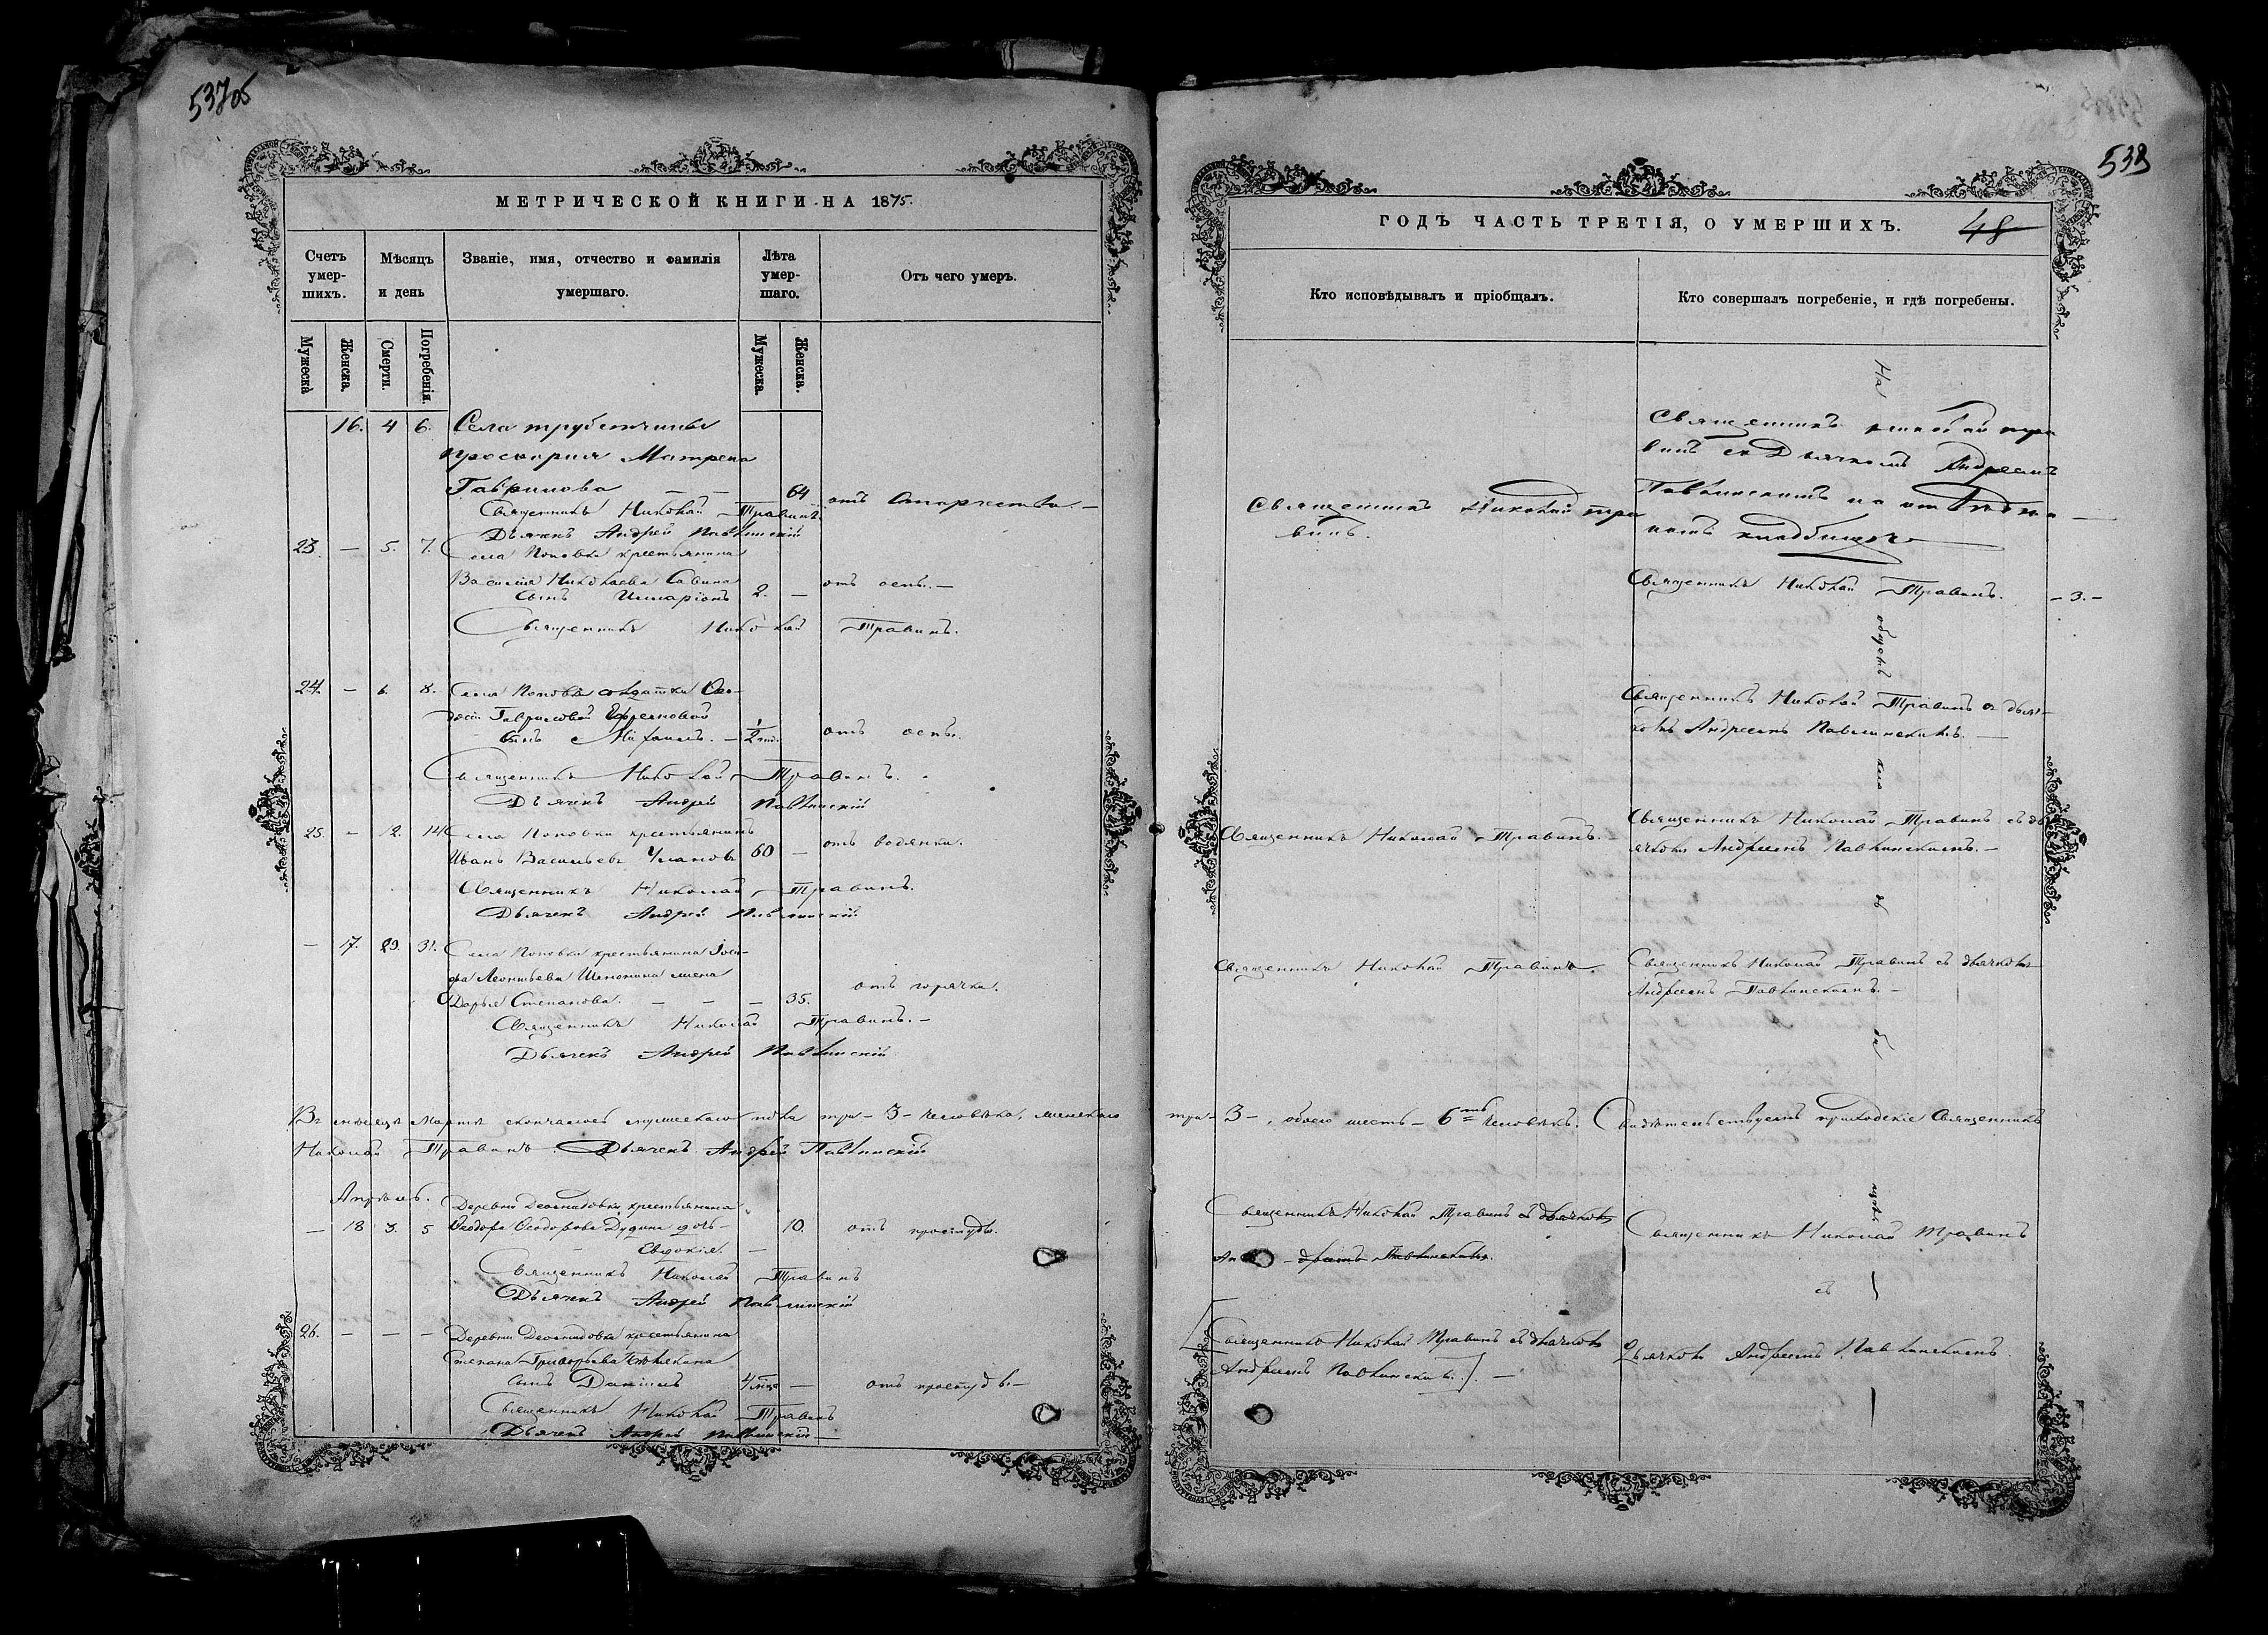 537об
МЕТРИЧЕСКОЙ КНИГИ НА 1875.
Счетъ умер-шихъ.
Мѣсяцъ и день
Званіе, имя, отчество и фамилія умершаго.
Лѣта умер-шаго.
Отъ чего умеръ.
Мужеска
Женска.
Смерти.
Погребенія.
Мужеска.
Женска.
16. 4 6. Села
Матрена
Гаврилова — — 64 отъ старчества. —
Священникъ Николай Травинъ.
Дьячекъ Андрей Павлинскій
23. — 5. 7. Села Поповки крестьянина
Василія Николаева Савина
сынъ Илларіонъ 2. — отъ оспы. —
Священникъ Николай Травинъ.
24. — 6. 8. Села Поповки солдатки
Гавриловой Ефремовой
сынъ Михаилъ. — 1/2 отъ оспы.
Священникъ Николай Травинъ.
Дьячекъ Андрей Павлинскій
25. — 12. 14 Села Поповки крестьянинъ
Иванъ Васильевъ 60 — отъ водянки.
Священникъ Николай Травинъ.
Дьячекъ Андрей Павлинскій
— 17. 29. 31. Села Поповки крестьянина Іоси-
фа Леонтьева жена
Дарья Степанова. — — — 35. отъ горячки.
Священникъ Николай Травинъ. —
Дьячекъ Андрей Павлинскій
Въ мѣсяцѣ Мартѣ скончалось мужескаго пола три — 3 — человѣка, женскаго
Николай Травинъ. Дьячекъ Андрей Павлинскій
Апрѣль.
Деревни крестьянина
— 18 3. 5 Ѳеодора Ѳеодорова Дудина дочь — 10. отъ простуды.
Евдокія. —
Священникъ Николай Травинъ
Дьячекъ Андрей Павлинскій
26. — — — Деревни крестьянина
Степана Григорьева
сынъ Даніилъ 4 мѣс — отъ простуды —
Священникъ Николай Травинъ
Дьячекъ Андрей Павлинскій
538
ГОДЪ ЧАСТЬ ТРЕТІЯ, О УМЕРШИХЪ.
48
Кто исповѣдывалъ и пріобщалъ.
Кто совершалъ погребеніе, и гдѣ погребены.
На общемъ
Священникъ Николай Тра
винъ.
Священникъ Николай Тра
винъ съ Дьячкомъ Андреемъ
Павлинскимъ на
номъ кладбищѣ
Священникъ Николай Травинъ. — 3. —
Священникъ Николай Травинъ съ дьяч-
комъ Андреемъ Павлинскимъ. —
Священникъ Николай Травинъ. —
Священникъ Николай Травинъ съ дь
ячкомъ Андреемъ Павлинскимъ. —
Священникъ Николай Травинъ.
Священникъ Николай Травинъ съ дьячкомъ
Андреемъ Павлинскимъ. —
три — 3 —, обоего шесть — 6ть человѣкъ. Свидѣтельствуемъ приходскіе Священникъ
Священникъ Николай Травинъ съ дьячкомъ
Священникъ Николай Травинъ
съ
Священникъ Николай Травинъ съ дьячкомъ
Андреемъ Павлинскимъ. —
Дьячкомъ Андреемъ Павлинскимъ